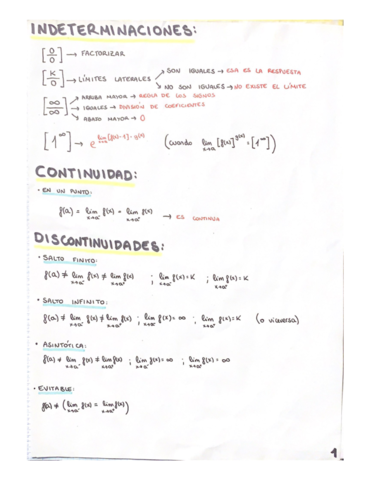 INDETERMINACIONES:
[0/0] → FACTORIZAR
[K/0] → LÍMITES LATERALES → SON IGUALES → ESA ES LA RESPUESTA
→ NO SON IGUALES → NO EXISTE EL LÍMITE
[∞/∞] → ARRIBA MAYOR → REGLA DE LOS SIGNOS
→ IGUALES → DIVISIÓN DE COEFICIENTES
→ ABAJO MAYOR → 0
[1^∞] → e^{lim x→a [f(x)-1] · g(x)} (cuando lim x→a [f(x)]^{g(x)} = [1^∞])
CONTINUIDAD:
· EN UN PUNTO:
f(a) = lim x→a⁻ f(x) = lim x→a⁺ f(x) → ES CONTINUA
DISCONTINUIDADES:
· SALTO FINITO:
f(a) ≠ lim x→a⁻ f(x) ≠ lim x→a⁺ f(x) ; lim x→a⁻ f(x) = K ; lim x→a⁺ f(x) = K
· SALTO INFINITO:
f(a) ≠ lim x→a⁻ f(x) ≠ lim x→a⁺ f(x) ; lim x→a⁻ f(x) = ∞ ; lim x→a⁺ f(x) = K (o viceversa)
· ASINTÓTICA:
f(a) ≠ lim x→a⁻ f(x) ≠ lim x→a⁺ f(x) ; lim x→a⁻ f(x) = ∞ ; lim x→a⁺ f(x) = ∞
· EVITABLE:
f(a) ≠ (lim x→a⁻ f(x) = lim x→a⁺ f(x))
1